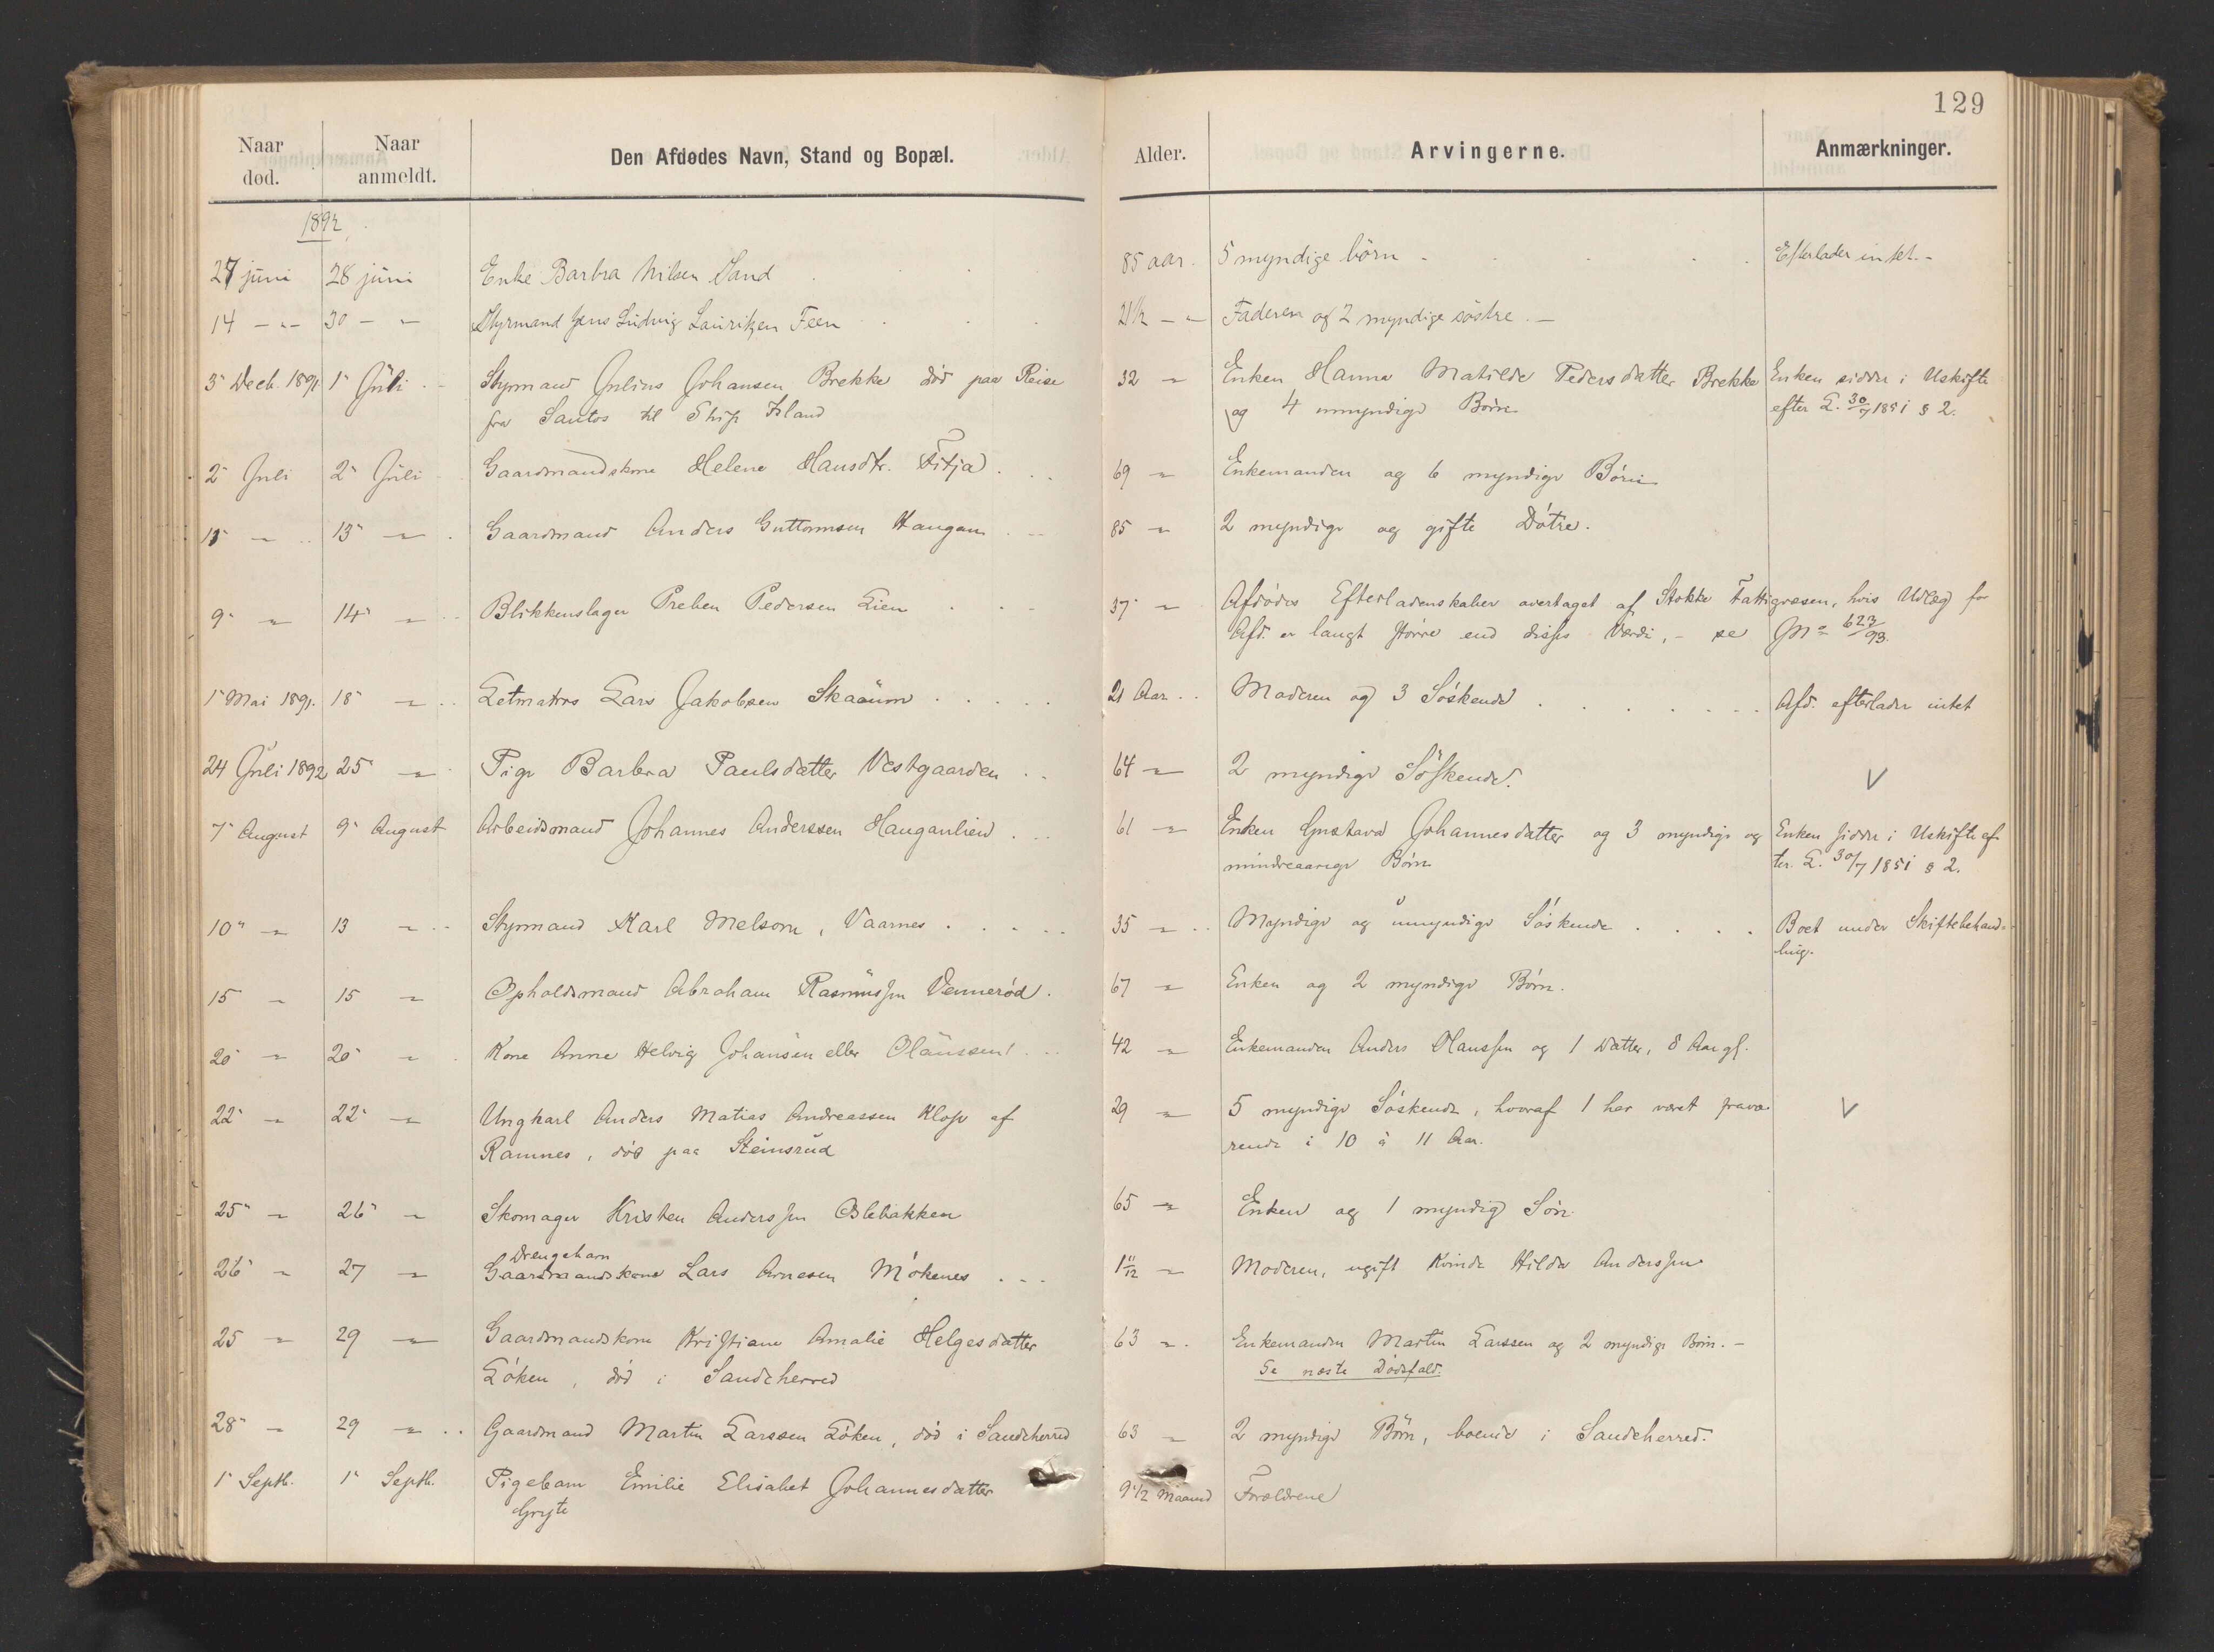 129
Naar død. Naar anmeldt. Den Afdødes Navn, Stand og Bopæl. Alder. Arvingerne. Anmærkninger.
1892
27 juni 28 juni Enke Barbra Nilsen Sand 85 aar. 5 myndige børn - Efterlader intet. -
14 -"- 30 - " Styrmand Jens Ludvig Lauritzen Feen 21½ -"- Faderen og 2 myndige søstre. -
3 Decb. 1891. 1 Juli Styrmand Julius Johansen Brekke død paa Reise 32 " Enken Hanna Matilde Pedersdatter Brekke Enken sidder i Uskifte
fra Santos til Ship Island og 4 umyndige Børn efter L. 30/7 1851 § 2.
2 Juli 2 Juli Gaardmandskone Helene Hansdtr. Fitja 69 " Enkemanden og 6 myndige Børn
11 " 13 " Gaardmand Anders Guttormsen Haugan 85 " 2 myndige og gifte Døtre.
9 " 14 " Blikkenslager Preben Pedersen Lien 37 " Afdødes Efterladenskaber overtaget af Stokke Fattigvæsen, hvis Udlæg for
Afd. er langt større end disses Værdi, - se No 623/93.
1 Mai 1891. 18 " Letmatros Lars Jakobsen Skaaum 21 Aar Moderen og 3 Søskende Afd. efterlader intet
24 Juli 1892 25 " Pige Barbra Paulsdatter Vestgaarden 64 " 2 myndige Søskende. V
7 August 9 August Arbeidsmand Johannes Anderssen Hauganlien 61 " Enken Gustava Johannesdatter og 3 myndige og Enken sidder i Uskifte ef-
mindreaarige Børn ter L. 30/7 1851 § 2.
10 " 13 " Styrmand Karl Melsom, Vaarnes 35 " Myndige og umyndige Søskende Boet under Skiftebehand-
ling.
15 " 15 " Opholdsmand Abraham Rasmussen Vennerød. 67 " Enken og 2 myndige Børn.
20 " 20 " Kone Anne Helvig Johansen eller Olaussen 42 " Enkemanden Anders Hanssen og 1 Datter, 8 Aar gl.
22 " 22 " Ungkarl Anders Matias Andreassen Klop af 29 " 5 myndige Søskende, hvoraf 1 har været fravæ- V
Ramnes, død paa Steinsrud rende i 10 à 11 Aar.
25 " 26 " Skomager Kristen Anderssen Oslebakken 65 " Enken og 1 myndig Søn
Drengebarn
26 " 27 " Gaardmandskone Lars Arnesen Møkenes 1 11/12 " Moderen, ugift Kvinde Hilda Anderssen
25 " 29 " Gaardmandskone Kristiane Amalie Helgesdatter 63 " Enkemanden Martin Larssen og 2 myndige Børn. -
Løken, død i Sandeherred Se næste Dødsfald.
28 " 29 " Gaardmand Martin Larssen Løken, død i Sandeherred 63 " 2 myndige Børn, boende i Sandeherred.
1 Septb. 1 Septb. Pigebarn Emilie Elisabet Johannesdatter 9½ Maaned Forældrene
Gryte